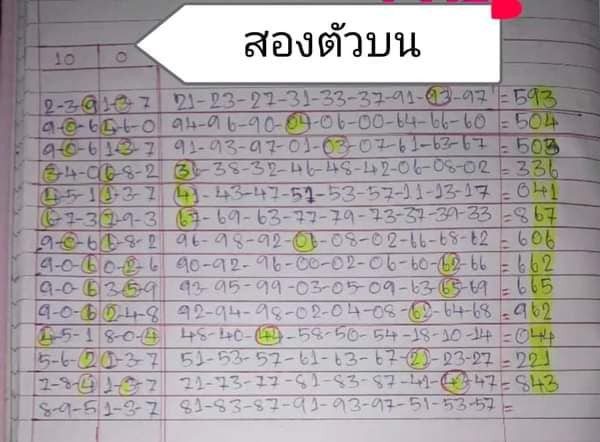 สองตัวบน
10 0
2-3-9 1-3-7 21-23-27-31-33-37-91-93-97 = 593
9-0-6 4-6-0 94-96-90-04-06-00-64-66-60 = 504
9-0-6 1-3-7 91-93-97-01-03-07-61-63-67 = 503
3-4-0 6-8-2 36-38-32-46-48-42-06-08-02 = 336
4-5-1 1-3-7 41-43-47-51-53-57-11-13-17 = 041
6-7-3 7-9-3 67-69-63-77-79-73-37-39-33 = 867
9-0-6 6-8-2 96-98-92-06-08-02-66-68-62 = 606
9-0-6 0-2-6 90-92-96-00-02-06-60-62-66 = 662
9-0-6 3-5-9 93-95-99-03-05-09-63-65-69 = 665
9-0-6 2-4-8 92-94-98-02-04-08-62-64-68 = 962
4-5-1 8-0-4 48-40-44-58-50-54-18-10-14 = 044
5-6-2 1-3-7 51-53-57-61-63-67-21-23-27 = 221
7-8-4 1-3-7 71-73-77-81-83-87-41-43-47 = 843
8-9-5 1-3-7 81-83-87-91-93-97-51-53-57 =